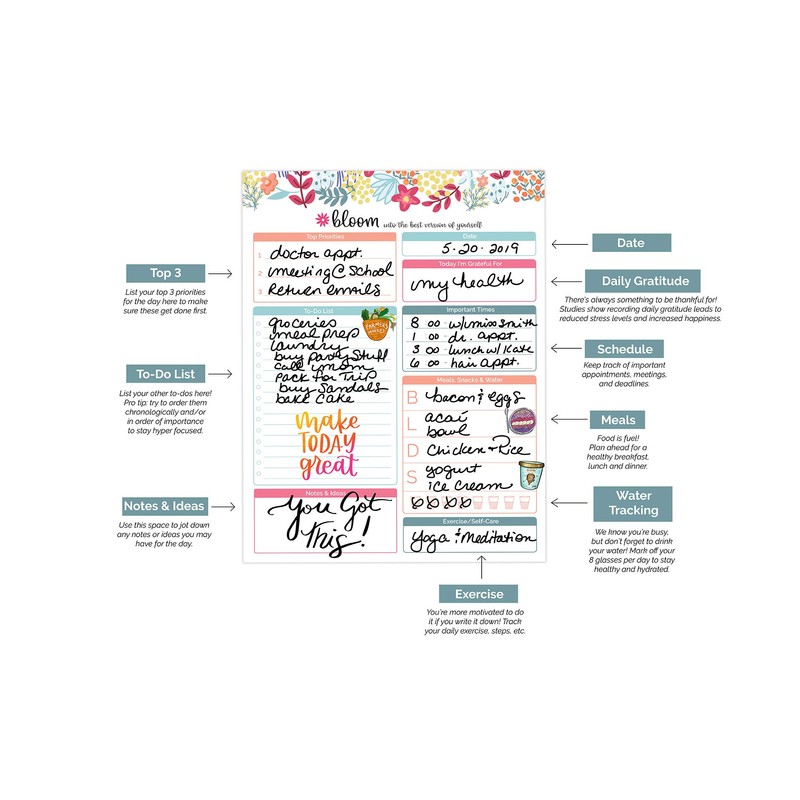 bloom into the best version of yourself
Top Priorities
1 doctor appt.
2 meeting @ School
3 Return emails
Date
5·20·2019
Today I'm Grateful For
my health
To-Do List
groceries
meal prep
laundry
buy party Stuff
call mom
Pack for Trip
buy Sandals
bake cake
FARMERS MARKET
make
TODAY
great
Important Times
8 00 w/miss Smith
1 00 dr. appt.
3 00 lunch w/ Kate
6 00 hair appt.
Meals, Snacks & Water
B bacon & eggs
L acaí
bowl
D Chicken + Rice
S yogurt
ice cream
Notes & Ideas
You Got
This!
Exercise/Self-Care
Yoga & Meditation
Top 3
List your top 3 priorities
for the day here to make
sure these get done first.
To-Do List
List your other to-dos here!
Pro tip: try to order them
chronologically and/or
in order of importance
to stay hyper focused.
Notes & Ideas
Use this space to jot down
any notes or ideas you may
have for the day.
Date
Daily Gratitude
There's always something to be thankful for!
Studies show recording daily gratitude leads to
reduced stress levels and increased happiness.
Schedule
Keep track of important
appointments, meetings,
and deadlines.
Meals
Food is fuel!
Plan ahead for a
healthy breakfast,
lunch and dinner.
Water
Tracking
We know you're busy,
but don't forget to drink
your water! Mark off your
8 glasses per day to stay
healthy and hydrated.
Exercise
You're more motivated to do
it if you write it down! Track
your daily exercise, steps, etc.